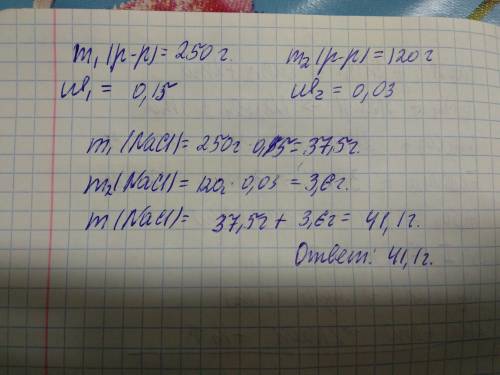 m₁ (р-р) = 250 г. m₂ (р-р) = 120 г
ω₁ = 0,15 ω₂ = 0,03
m₁ (NaCl) = 250г · 0,15 = 37,5г.
m₂ (NaCl) = 120г · 0,03 = 3,6г.
m (NaCl) = 37,5г + 3,6г = 41,1г.
Ответ: 41,1г.